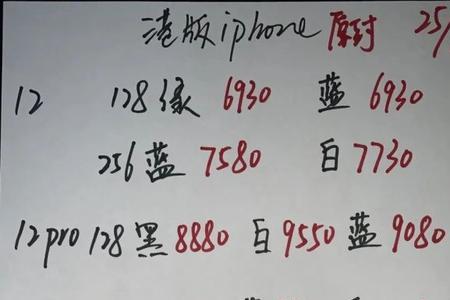 港版iphone 原封 25/
12 128 绿 6930 蓝 6930
256 蓝 7580 白 7730
12pro 128 黑 8880 白 9550 蓝 9080